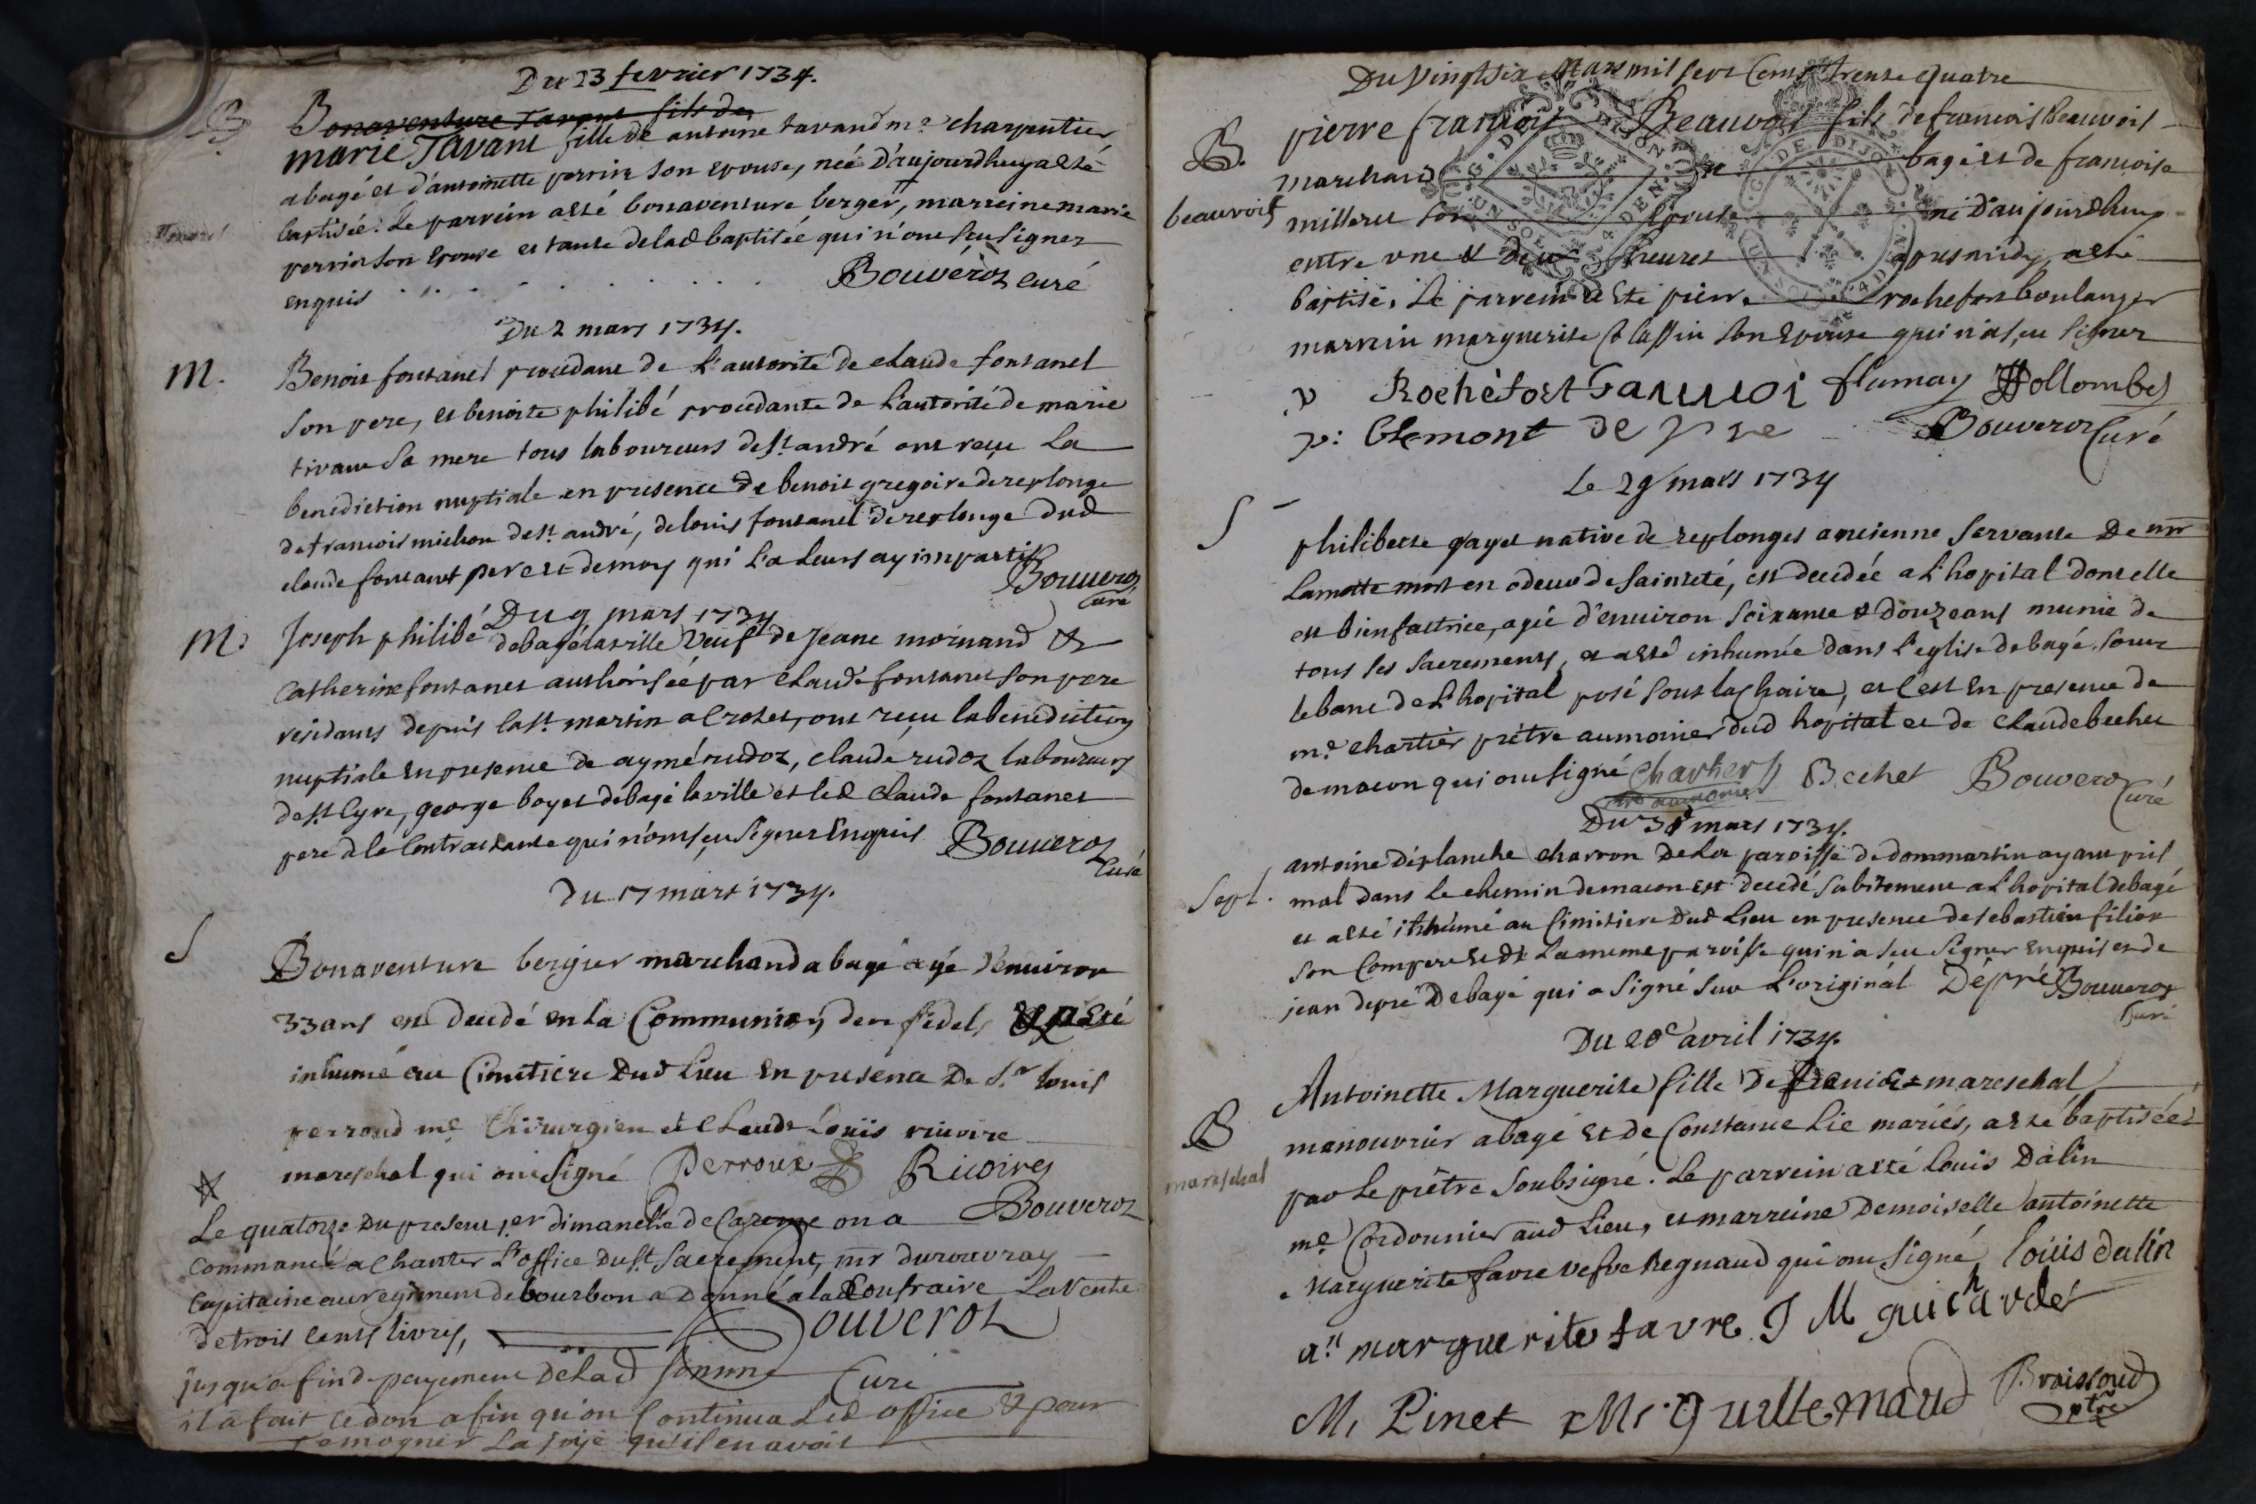 Du 23 fevrier 1734.
B
Bonaventure Tavant fils de
marie Tavant fille de antoine tavand me charpentier
a bagé et d'antoinette perrin son epouse, neé d'aujourdhuy a esté
baptisée. Le parrein a esté bonaventure berger, marreine marie
perrin son epouse et tante de lad baptisée qui n'ont sçu signer
enquis Bouveroz curé
Du 2 mars 1734.
M.
Benoit fontanel procedant de l'autorité de claude fontanel
son pere, et benoite philibé procedante de l'autorité de marie
sa mere tous laboureurs de st andré ont reçu la
benediction nuptiale en presence de benoit gregoire de replonge
de francois michon de st andré, de louis fontanel de replonge dud
claude fontanel pere et de moy qui la leurs ay impartit
Bouveroz
curé
Du 9 mars 1734
M.
Joseph philibé de bagé la ville veuf de Jeane moinand &
Catherine fontanet authorisée par claude fontanet son pere
residants depuis la st martin a Crotet, ont reçu la benediction
nuptiale en presence de aymé rudoz, claude rudoz laboureurs
de st Cyre, george boyet de bagé la ville et led claude fontanet
pere de la Contractante qui n'ont sçu signer Enquis Bouveroz
Curé
Du 17 mars 1734.
S
Bonaventure berger marchand a bagé agé d'environ
33 ans est decedé en la Communion des fidels & a esté
inhumé au Cimetiere dud lieu En presence de Sr louis
perroud me Chirurgien et Claude Louis rivoire
mareschal qui ont signé Perroux Rivoires
Bouveroz
Le quatorze du present, 1er dimanche de Careme on a
commancé a chanter l'office du st sacrement, mr durouvray
Capitaine au regiment de bourbon a donné a lad Confraire La vente
de trois cents livres, Bouveroz
jusqu'a fin de payement de lad somme Curé
il a fait ce don afin qu'on Continua led office & pour
temogner La joye qu'il en avoit
Du vingt six mars mil sept Cent trente quatre
B.
pierre francois Beauvois fils de francois Beauvois
marchand bagé et de francoise
beauvois
milleret son Epouse né d'aujourdhuy
entre une & deux heures apres midy a esté
baptisé, Le parrein a Esté pierre rochefort boulanger
marrein marguerite son Epouse qui n'a sçu signer
Rochefort flamay Hollombes
Clemont Bouveroz Curé
Le 29 mars 1734
S
philiberte gayet native de replonges ancienne servante de mr
Lamotte mort en odeur de sainteté, est decedée a l'hopital dont elle
est bienfaitrice, agée d'environ soixante & douze ans munie de
tous les sacrements, et a esté inhumée dans l'eglise de bagé, sous
le banc de l'hopital posé sous la chaire, et c'est En presence de
me Chartier prêtre aumonier dud hopital et de Claude bechet
de macon qui ont signé Chartier Bechet Bouveroz
aumonier Curé
Du 31 mars 1734.
Sept.
antoine deplanche charron de la paroisse de dommartin ayant pris
mal dans le chemin de macon est decedé subitement a l'hopital de bagé
et a esté inhumé au Cimitiere dud lieu en presence de sebastien filion
son Compere de La meme paroisse qui n'a sçu signer enquis et de
jean depré de bagé qui a signé sur l'originál Dépré Bouveroz
Curé
Du 20e avril 1734.
B
Antoinette Marguerite fille de mareschal
manouvrier a bagé et de Constance Lie mariés, a esté baptisée
mareschal
par le prêtre soubsigné. Le parrein a esté louis Dalin
me Cordonnier aud lieu, et marreine Demoiselle antoinette
Marguerite favre vefve Regnaud qui ont signé louis dalin
an marguerite favre J M guichardet
M. Pinet Mr guillemaud Braissoud
ptre